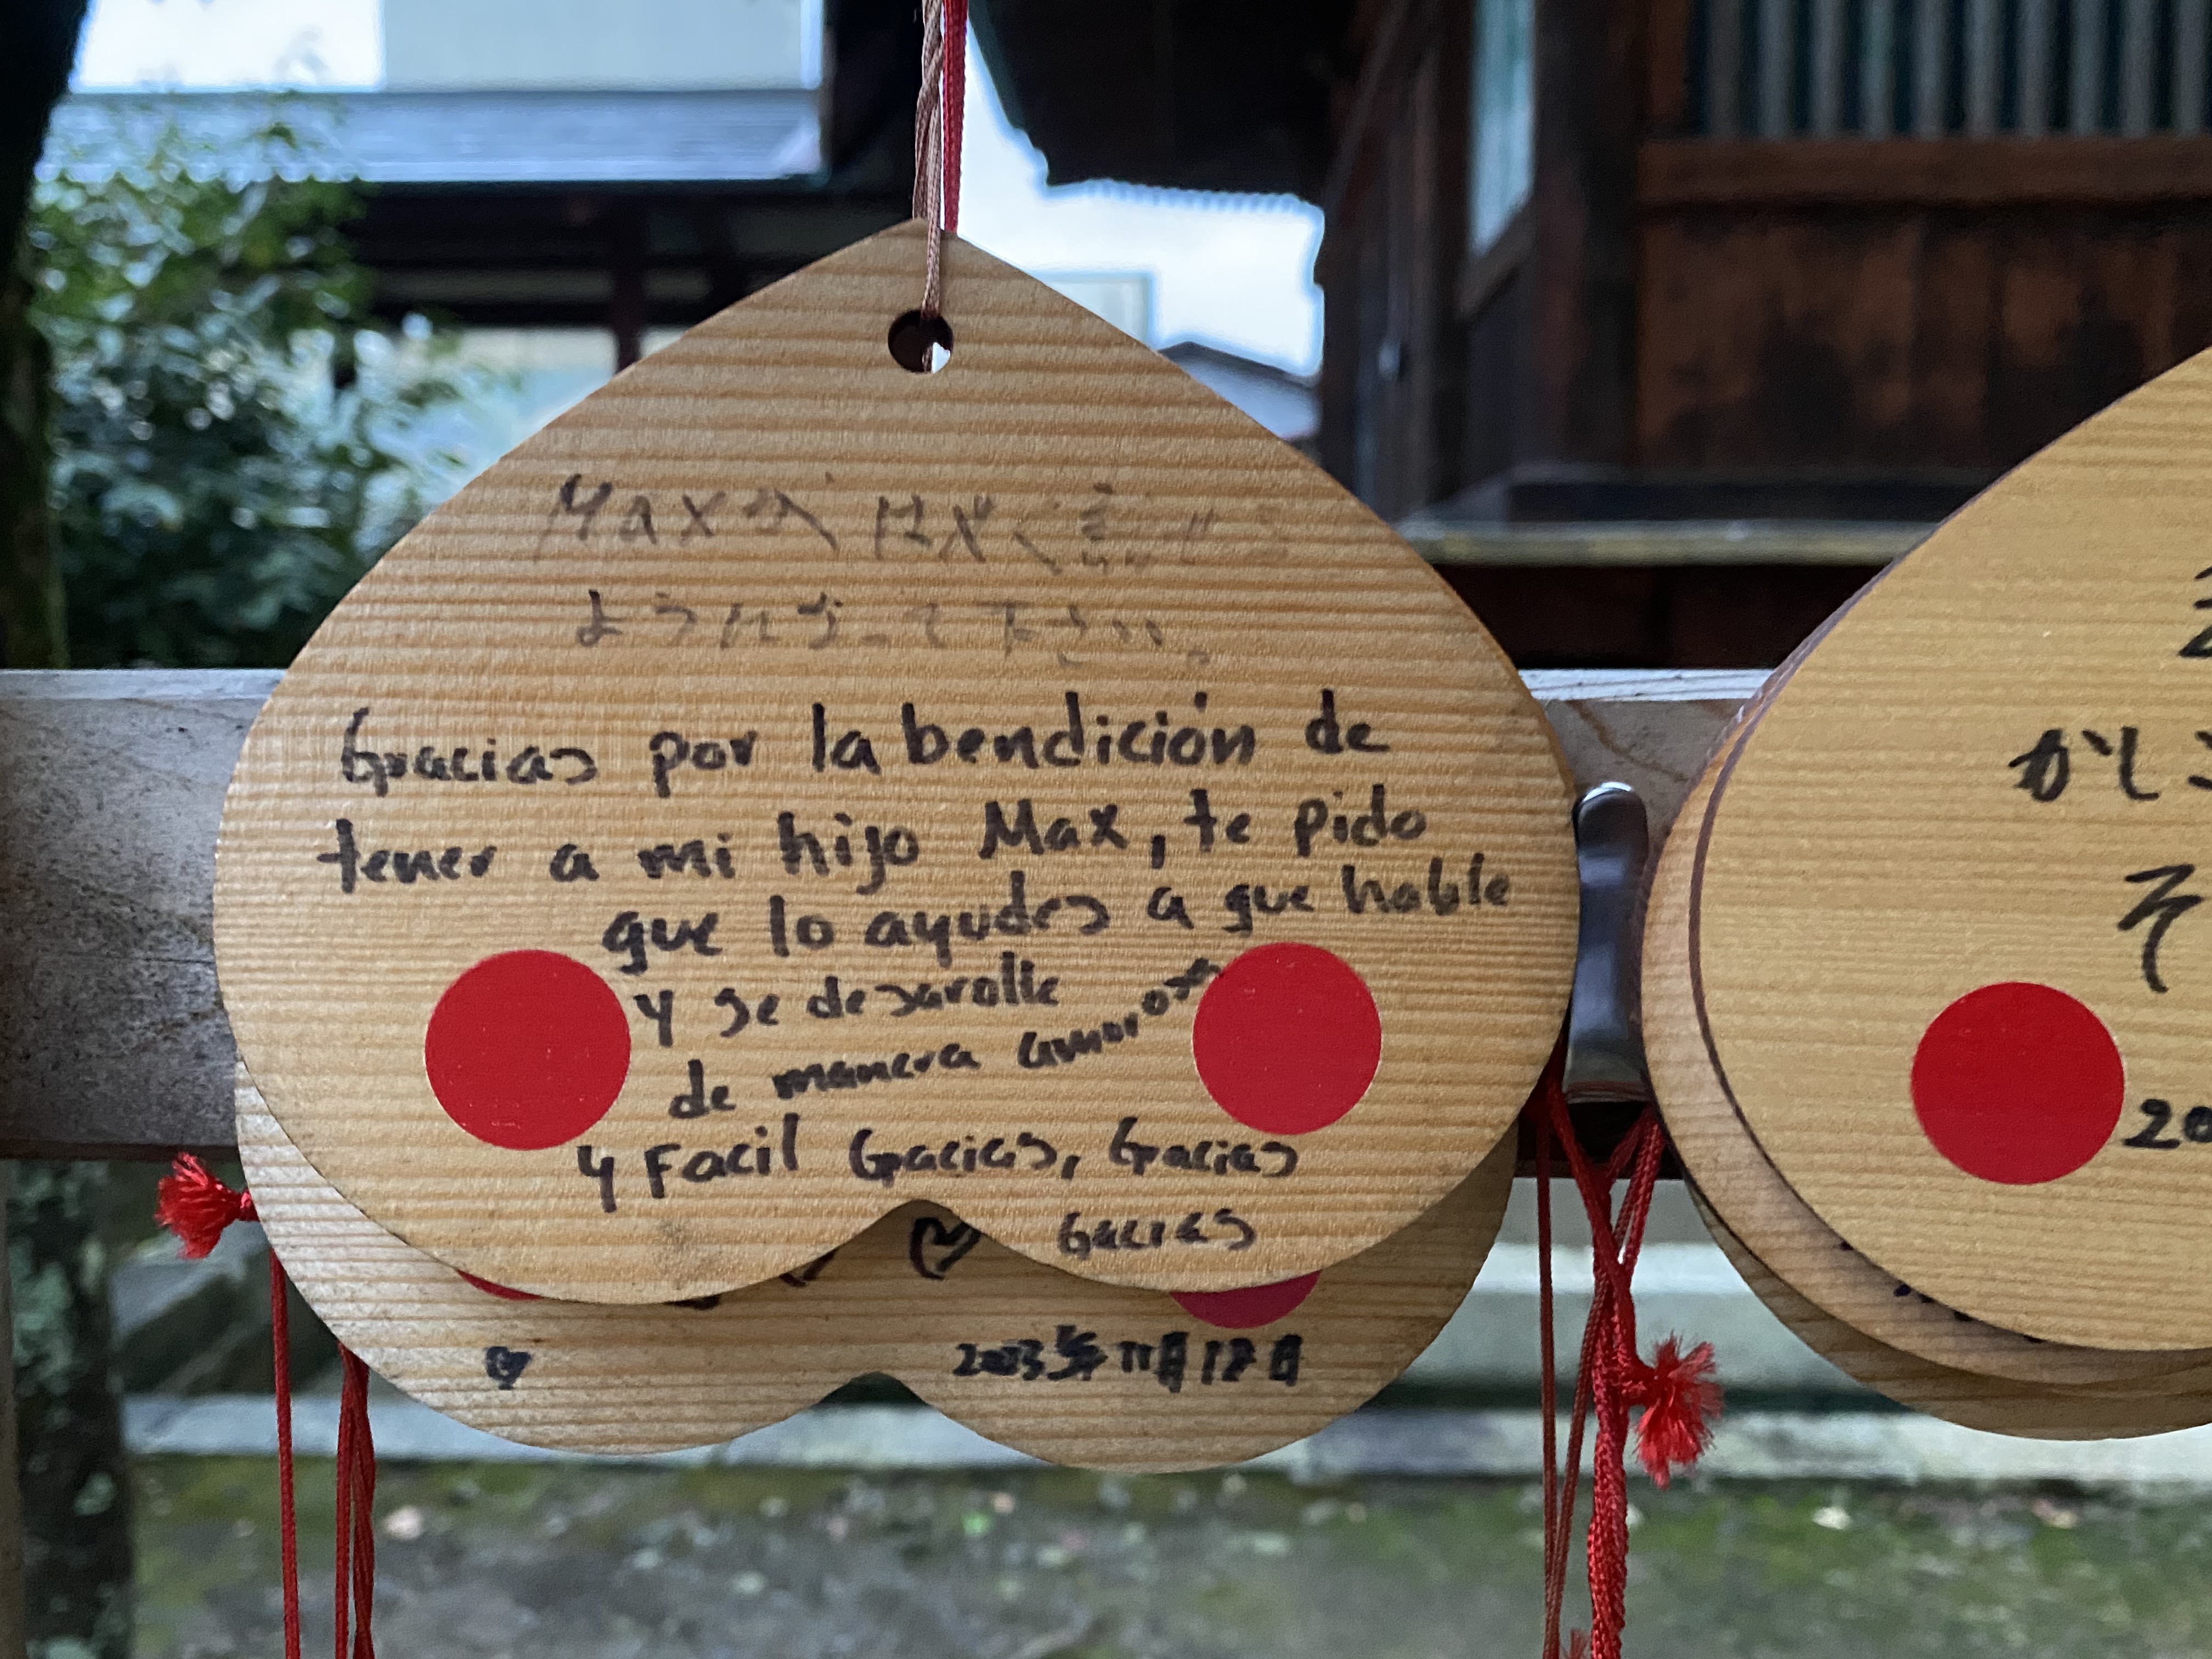 Maxが はやく 話せる
ようになって下さい。
Gracias por la bendición de
tener a mi hijo Max, te pido
que lo ayudes a que hable
y se desarolle
de manera amorosa
y Facil Gracias, Gracias
Gacias
2023年11月12日
がし
そ
20